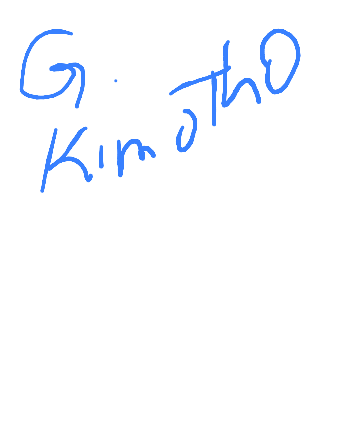 G.
KimoThO